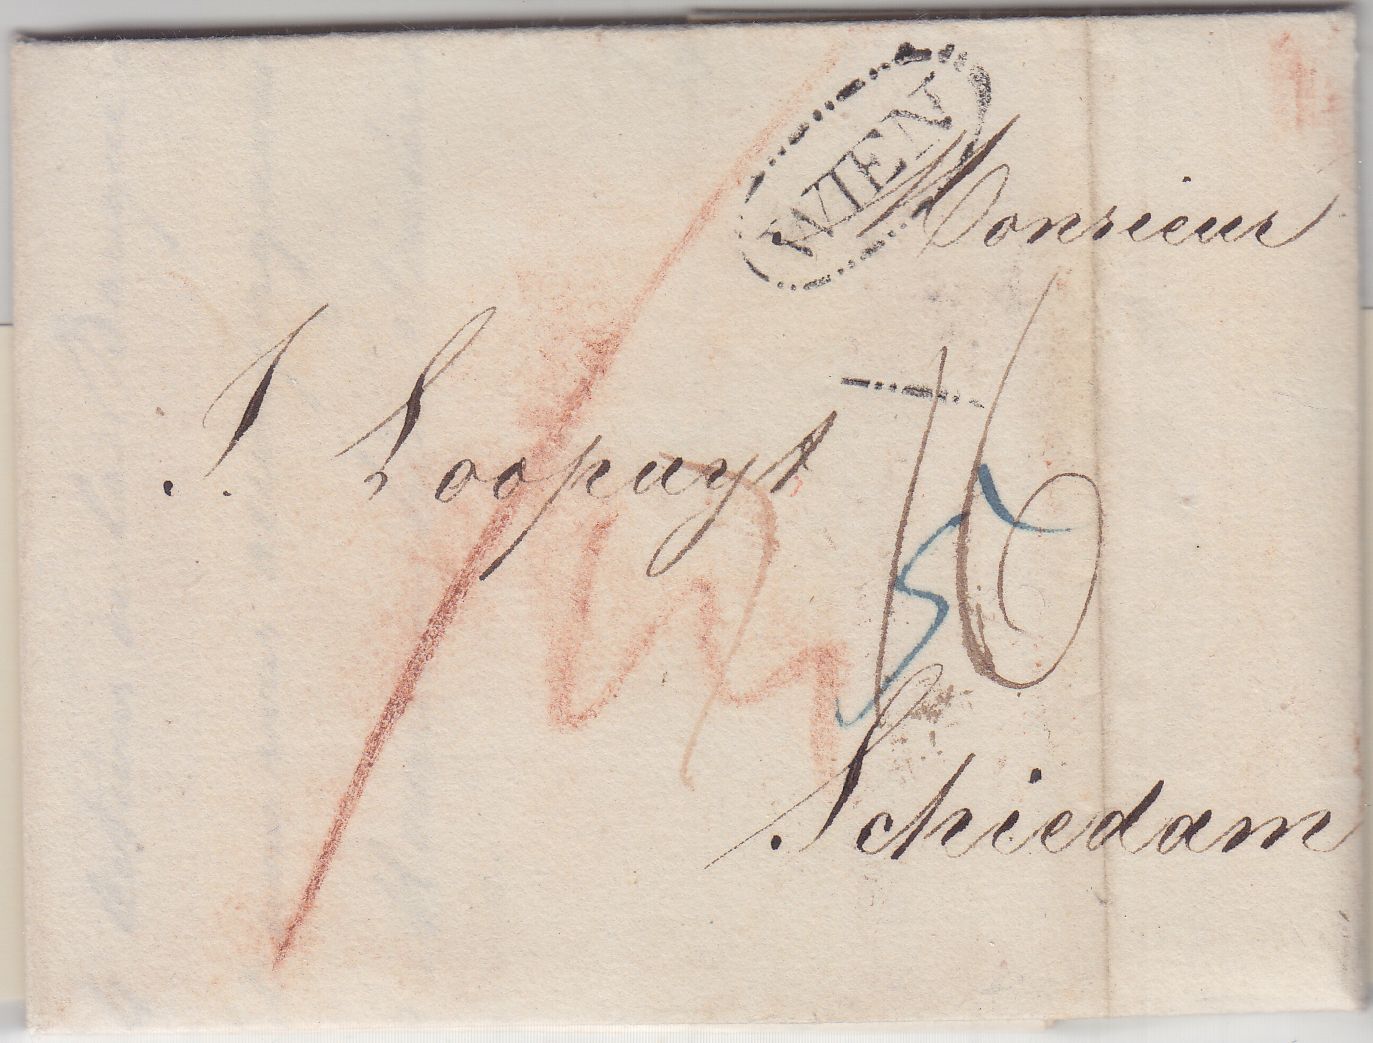 WIEN
Monsieur
J. Loopuyt
16
Schiedam